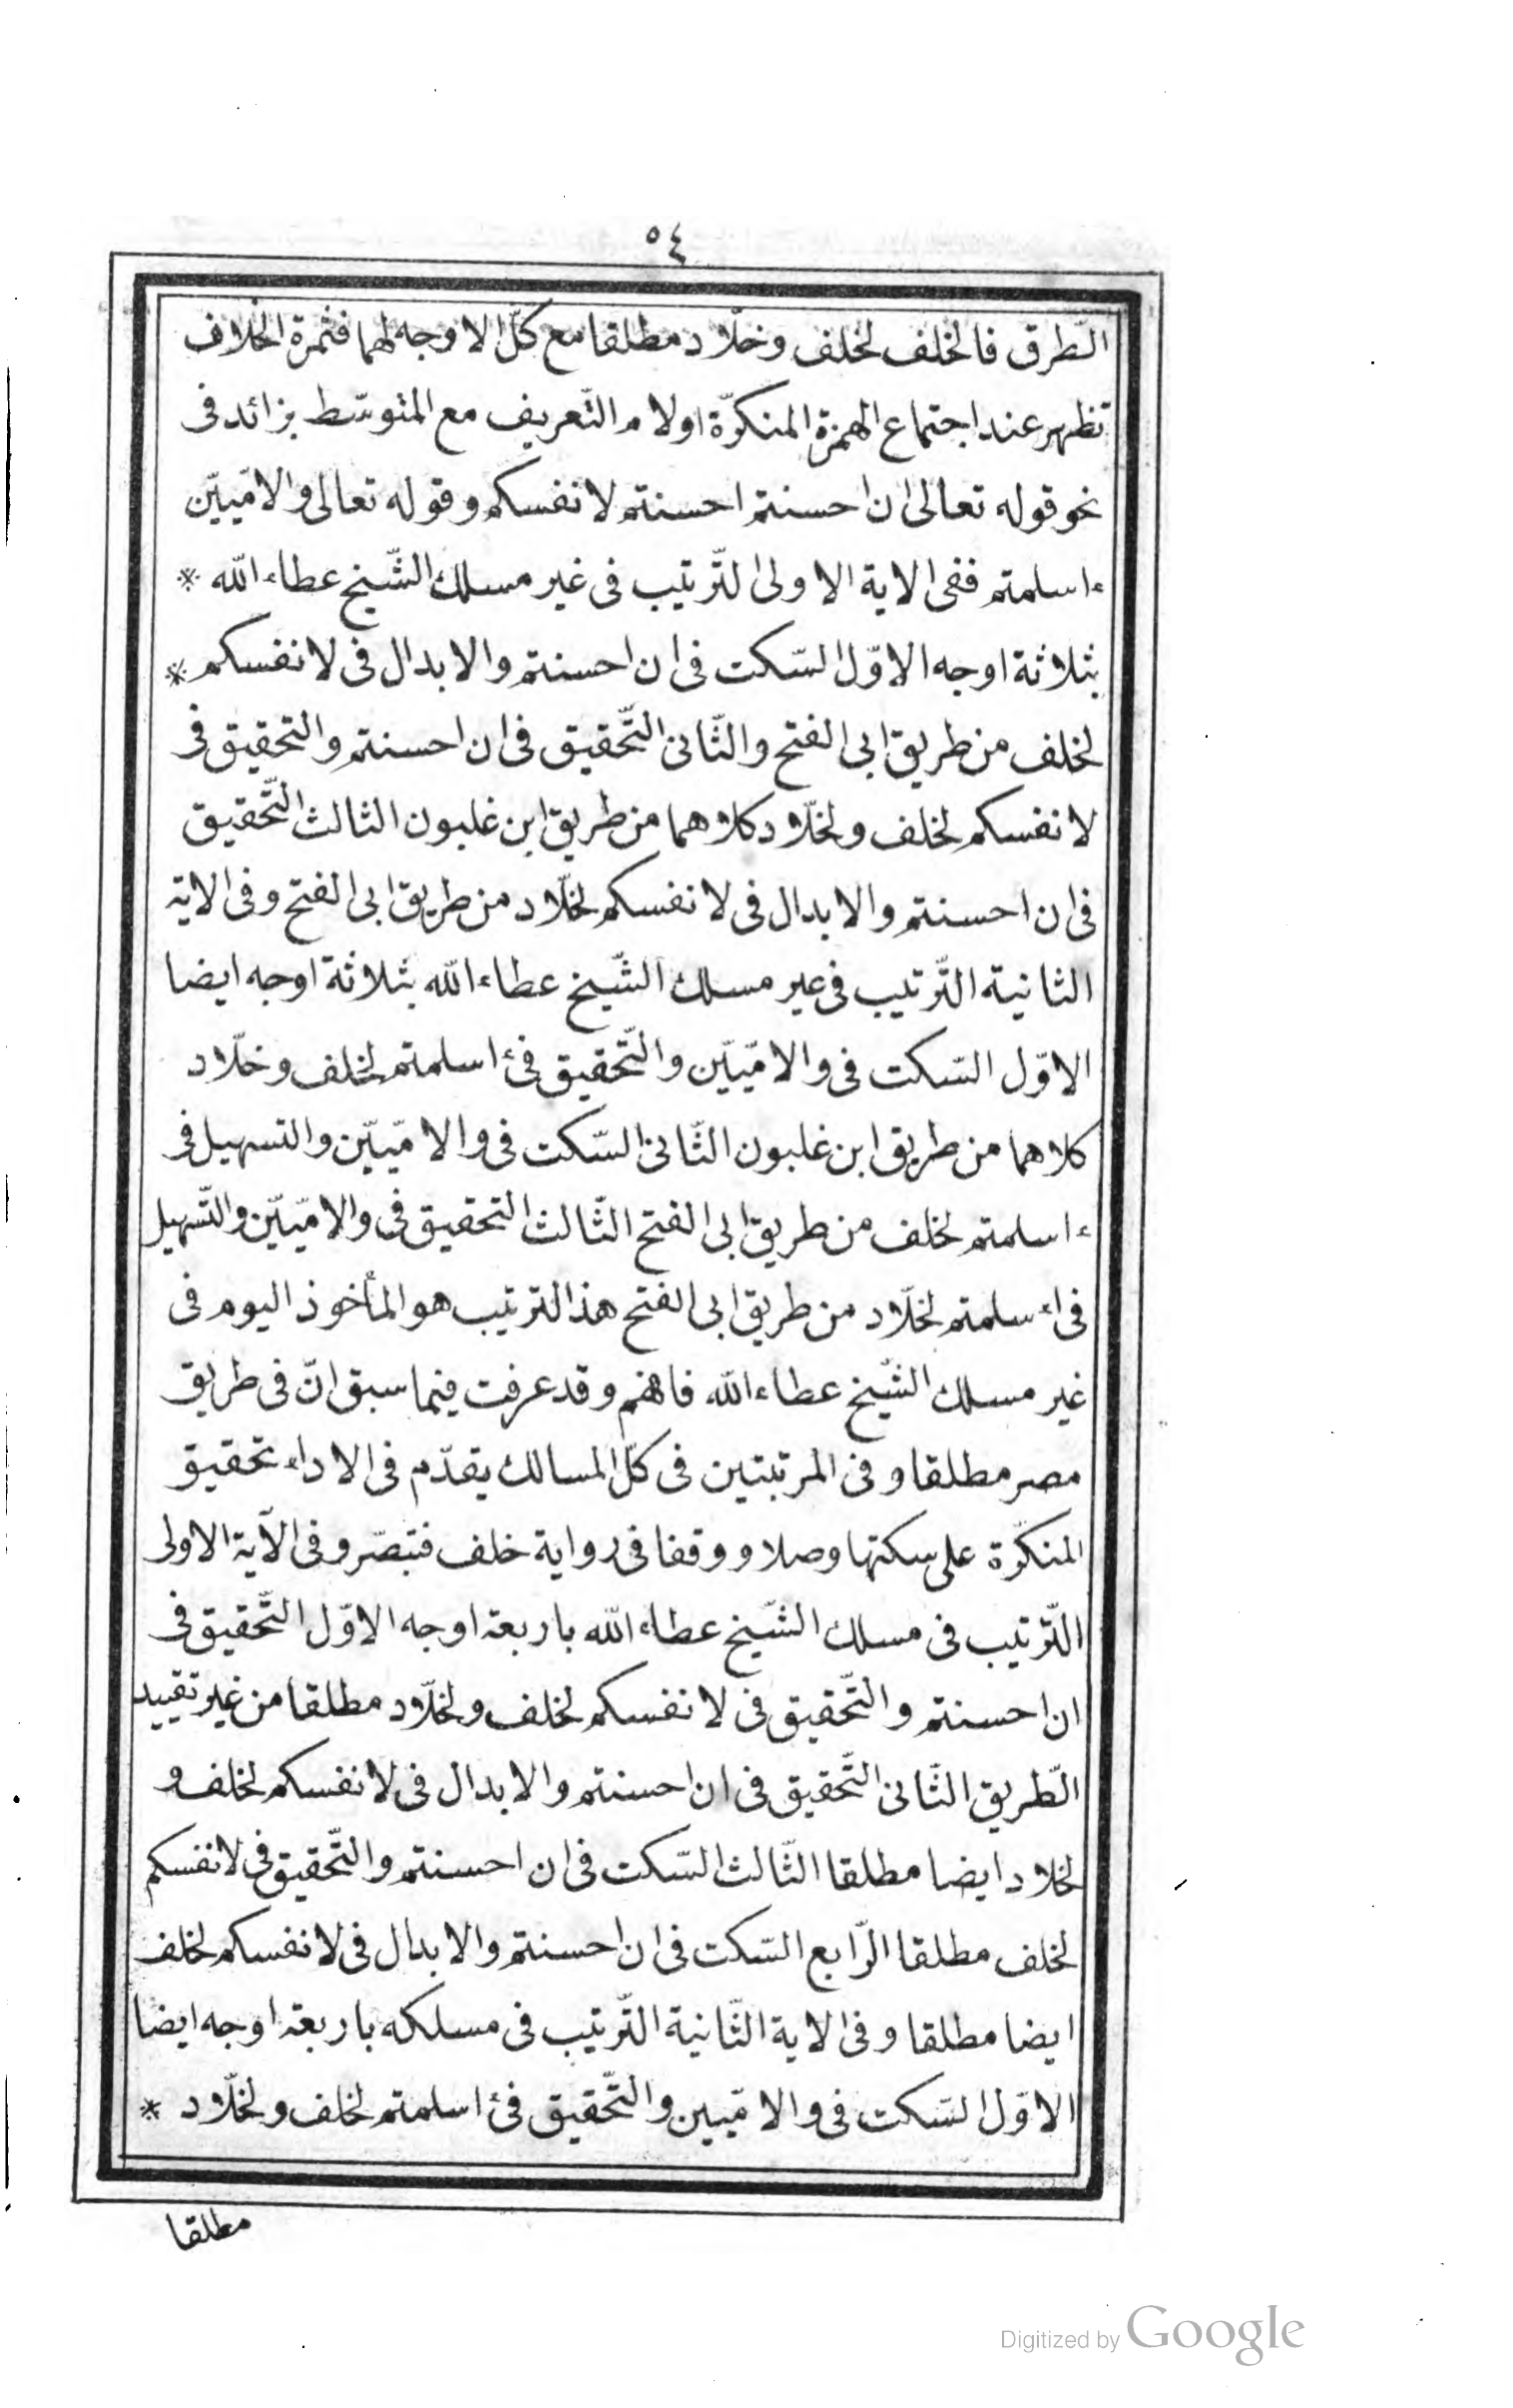 ٥٤
الطّرق فالخلف لخلف وخلّاد مطلقا مع كلّ الاوجه لهما فثمرة الخلاف
تظهر عند اجتماع الهمزة المنكرّة او لام التّعريف مع المتوسّط بزائد فى
نحو قوله تعالى ان احسنتم احسنتم لانفسكم وقوله تعالى والامّيّين
ءاسلمتم ففى الاية الاولى التّرتيب فى غير مسلك الشّيخ عطاء الله *
بثلاثة اوجه الاوّل السّكت فى ان احسنتم والابدال فى لانفسكم *
لخلف من طريق ابى الفتح والثّانى التّحقيق فى ان احسنتم والتحقيق فى
لانفسكم لخلف ولخلّاد كلاهما من طريق ابن غلبون الثالث التّحقيق
فى ان احسنتم والابدال فى لانفسكم لخلّاد من طريق ابى الفتح وفى الاية
الثانية التّرتيب فى غير مسلك الشّيخ عطاء الله بثلاثة اوجه ايضا
الاوّل السّكت فى والامّيّين والتّحقيق فى ءاسلمتم لخلف وخلّاد
كلاهما من طريق ابن غلبون الثّانى السّكت فى والامّيّين والتسهيل فى
ءاسلمتم لخلف من طريق ابى الفتح الثّالث التحقيق فى والامّيّين والتّسهيل
فى اءسلمتم لخلّاد من طريق ابى الفتح هذا الترتيب هو المأخوذ اليوم فى
غير مسلك الشّيخ عطاء الله فافهم وقد عرفت فيما سبق انّ فى طريق
مصر مطلقا وفى المرتبتين فى كلّ المسالك يقدّم فى الاداء تحقيق
المنكرّة على سكتها وصلا ووقفا فى رواية خلف فتبصّر وفى الآية الاولى
التّرتيب فى مسلك الشّيخ عطاء الله باربعة اوجه الاوّل التّحقيق فى
ان احسنتم والتّحقيق فى لانفسكم لخلف ولخلّاد مطلقا من غير تقييد
الطّريق الثّانى التّحقيق فى ان احسنتم والابدال فى لانفسكم لخلف و
لخلاد ايضا مطلقا الثّالث السّكت فى ان احسنتم والتّحقيق فى لانفسكم
لخلف مطلقا الرّابع السّكت فى ان احسنتم والابدال فى لانفسكم لخلف
ايضا مطلقا وفى الاية الثّانية التّرتيب فى مسلكه باربعة اوجه ايضا
الاوّل السّكت فى والامّيين والتّحقيق فى ءاسلمتم لخلف ولخلّاد *
مطلقا
Digitized by Google